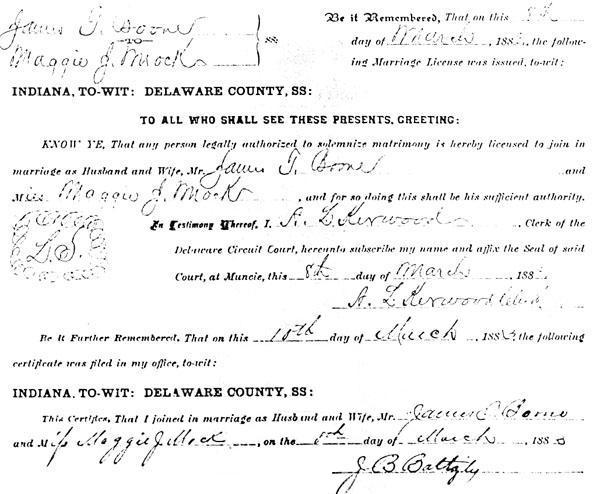 James T. Boone
TO
Maggie J. Mock
SS
Be it Remembered, That on this 8th
day of March 188 , the follow-
ing Marriage License was issued, to-wit:
INDIANA, TO-WIT: DELAWARE COUNTY, SS:
TO ALL WHO SHALL SEE THESE PRESENTS, GREETING:
KNOW YE, That any person legally authorized to solemnize matrimony is hereby licensed to join in
marriage as Husband and Wife, Mr. James T. Boone and
Miss Maggie J. Mock , and for so doing this shall be his sufficient authority.
In Testimony Whereof, I, A. L. Kerwood Clerk of the
L.S.
Delaware Circuit Court, hereunto subscribe my name and affix the Seal of said
Court, at Muncie, this 8th day of March 188
A. L. Kerwood Clerk
Be it Further Remembered, That on this 10th day of March , 188 , the following
certificate was filed in my office, to-wit:
INDIANA, TO-WIT: DELAWARE COUNTY, SS:
This Certifies, That I joined in marriage as Husband and Wife, Mr. James T. Boone
and Miss Maggie J. Mock , on the 8th day of March 188
J. B.